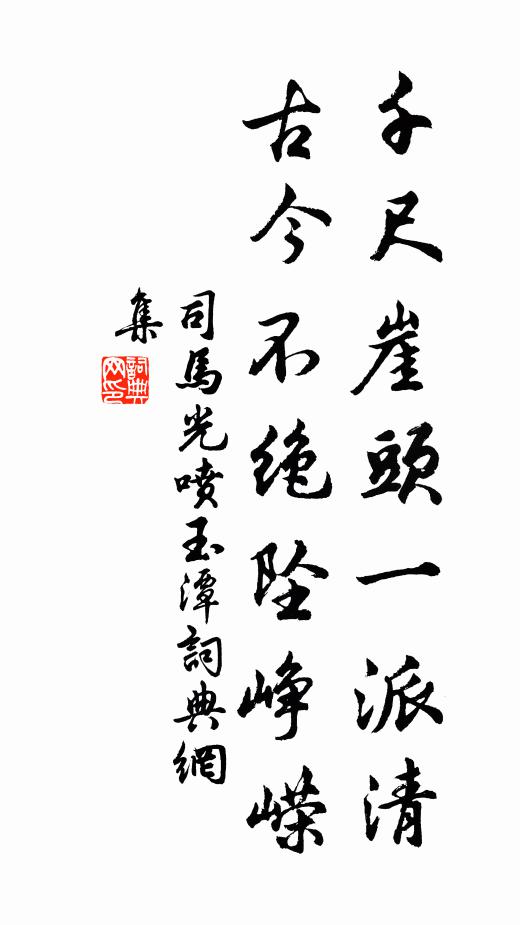 千尺崖頭一派清
古今不绝坠峥嵘
司馬光噴玉潭詞典網
集
詞典
网印